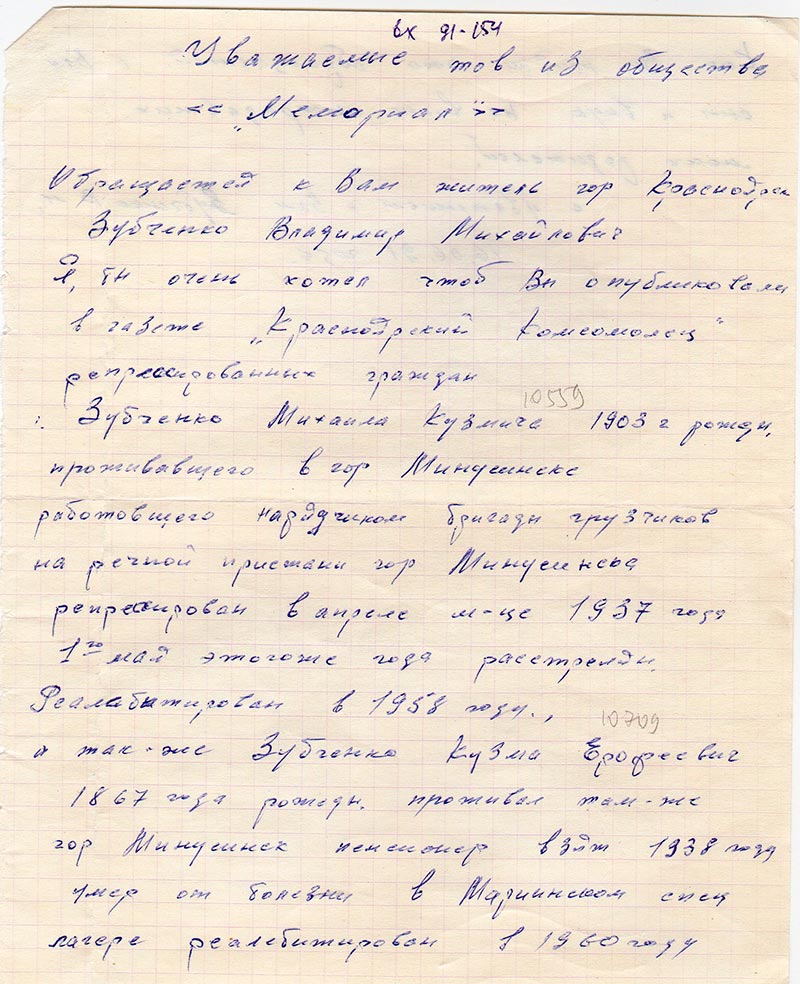 вх 91-154
Уважаемые тов из общества
<< „Мемориал" >>
Обращается к Вам житель гор Красноярск
Зубченко Владимир Михайлович
Я, бы очень хотел чтоб Вы опубликовали
в газете „Красноярский Комсомолец"
репрессированных граждан
10559
Зубченко Михаила Кузмича 1903 г рожден.
проживавшего в гор Минусинске
работовшего нарядчиком бригады грузчиков
на речной пристани гор Минусинска
репрессирован в апреле м-це 1937 года
1го май этогоже года расстрелян.
Реалабитирован в 1958 году.,
10709
а так-же Зубченко Кузма Ерофеевич
1867 года рожедн. проживал там-же
гор Минусинск пенсионер взят 1938 году
умер от болезни в Мариинском спец
лагере реалебитирован в 1960 году